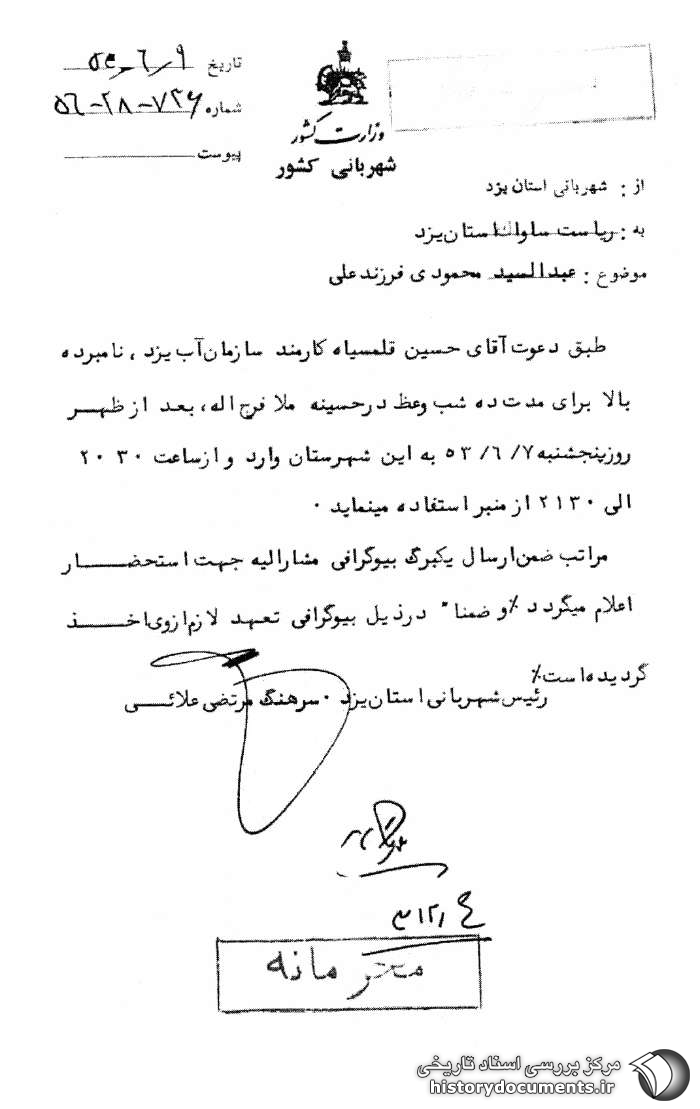 تاریخ ۵۳/۶/۹
شماره ۷۳۶-۲۸-۵٦
پیوست
وزارت کشور
شهربانی کشور
از : شهربانی استان یزد
به : ریاست ساواک استان یزد
موضوع : عبدالسید محمودی فرزند علی
طبق دعوت آقای حسین قلمسیاه کارمند سازمان آب یزد ، نامبرده
بالا برای مدت ده شب وعظ در حسینه ملا فرج اله ، بعد از ظهر
روز پنجشنبه ۵۳/۶/۷ به این شهرستان وارد و از ساعت ۲۰۳۰
الی ۲۱۳۰ از منبر استفاده مینماید ۰
مراتب ضمن ارسال یکبرگ بیوگرافی مشارالیه جهت استحضار
اعلام میگردد ٪ و ضمنا" در ذیل بیوگرافی تعهد لازم از وی اخذ
گردیده است ٪
رئیس شهربانی استان یزد ۰ سرهنگ مرتضی علائی
۳۱۲٫ع
محرمانه
مرکز بررسی اسناد تاریخی
historydocuments.ir